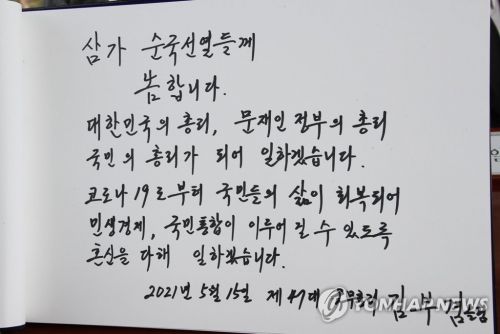 삼가 순국선열들께
놈합니다.
대한민국의 총리, 문재인 정부의 총리
국민의 총리가 되어 일하겠습니다.
코로나 19로부터 국민들의 삶이 회복되어
민생경제, 국민통합이 이루어 질 수 있도록
혼신을 다해 일하겠습니다.
2021년 5월 15일 제 47대 국무총리 김부겸
YONHAP NEWS